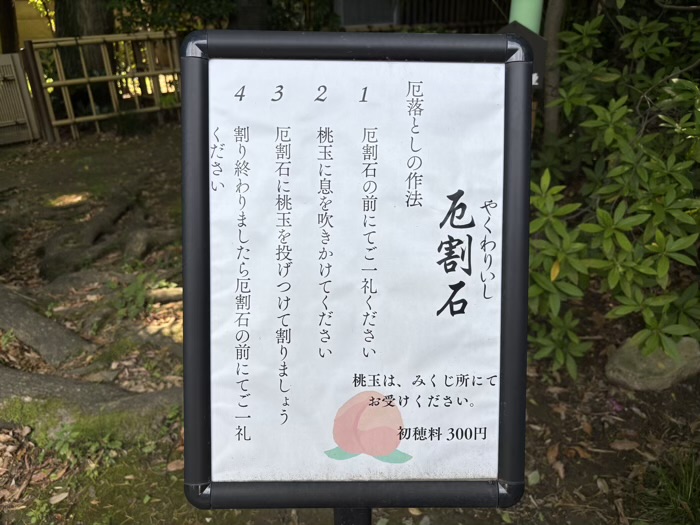 やくわりいし
厄割石
厄落としの作法
1 厄割石の前にてご一礼ください
2 桃玉に息を吹きかけてください
3 厄割石に桃玉を投げつけて割りましょう
4 割り終わりましたら厄割石の前にてご一礼
ください
桃玉は、みくじ所にて
お受けください。
初穂料 300円